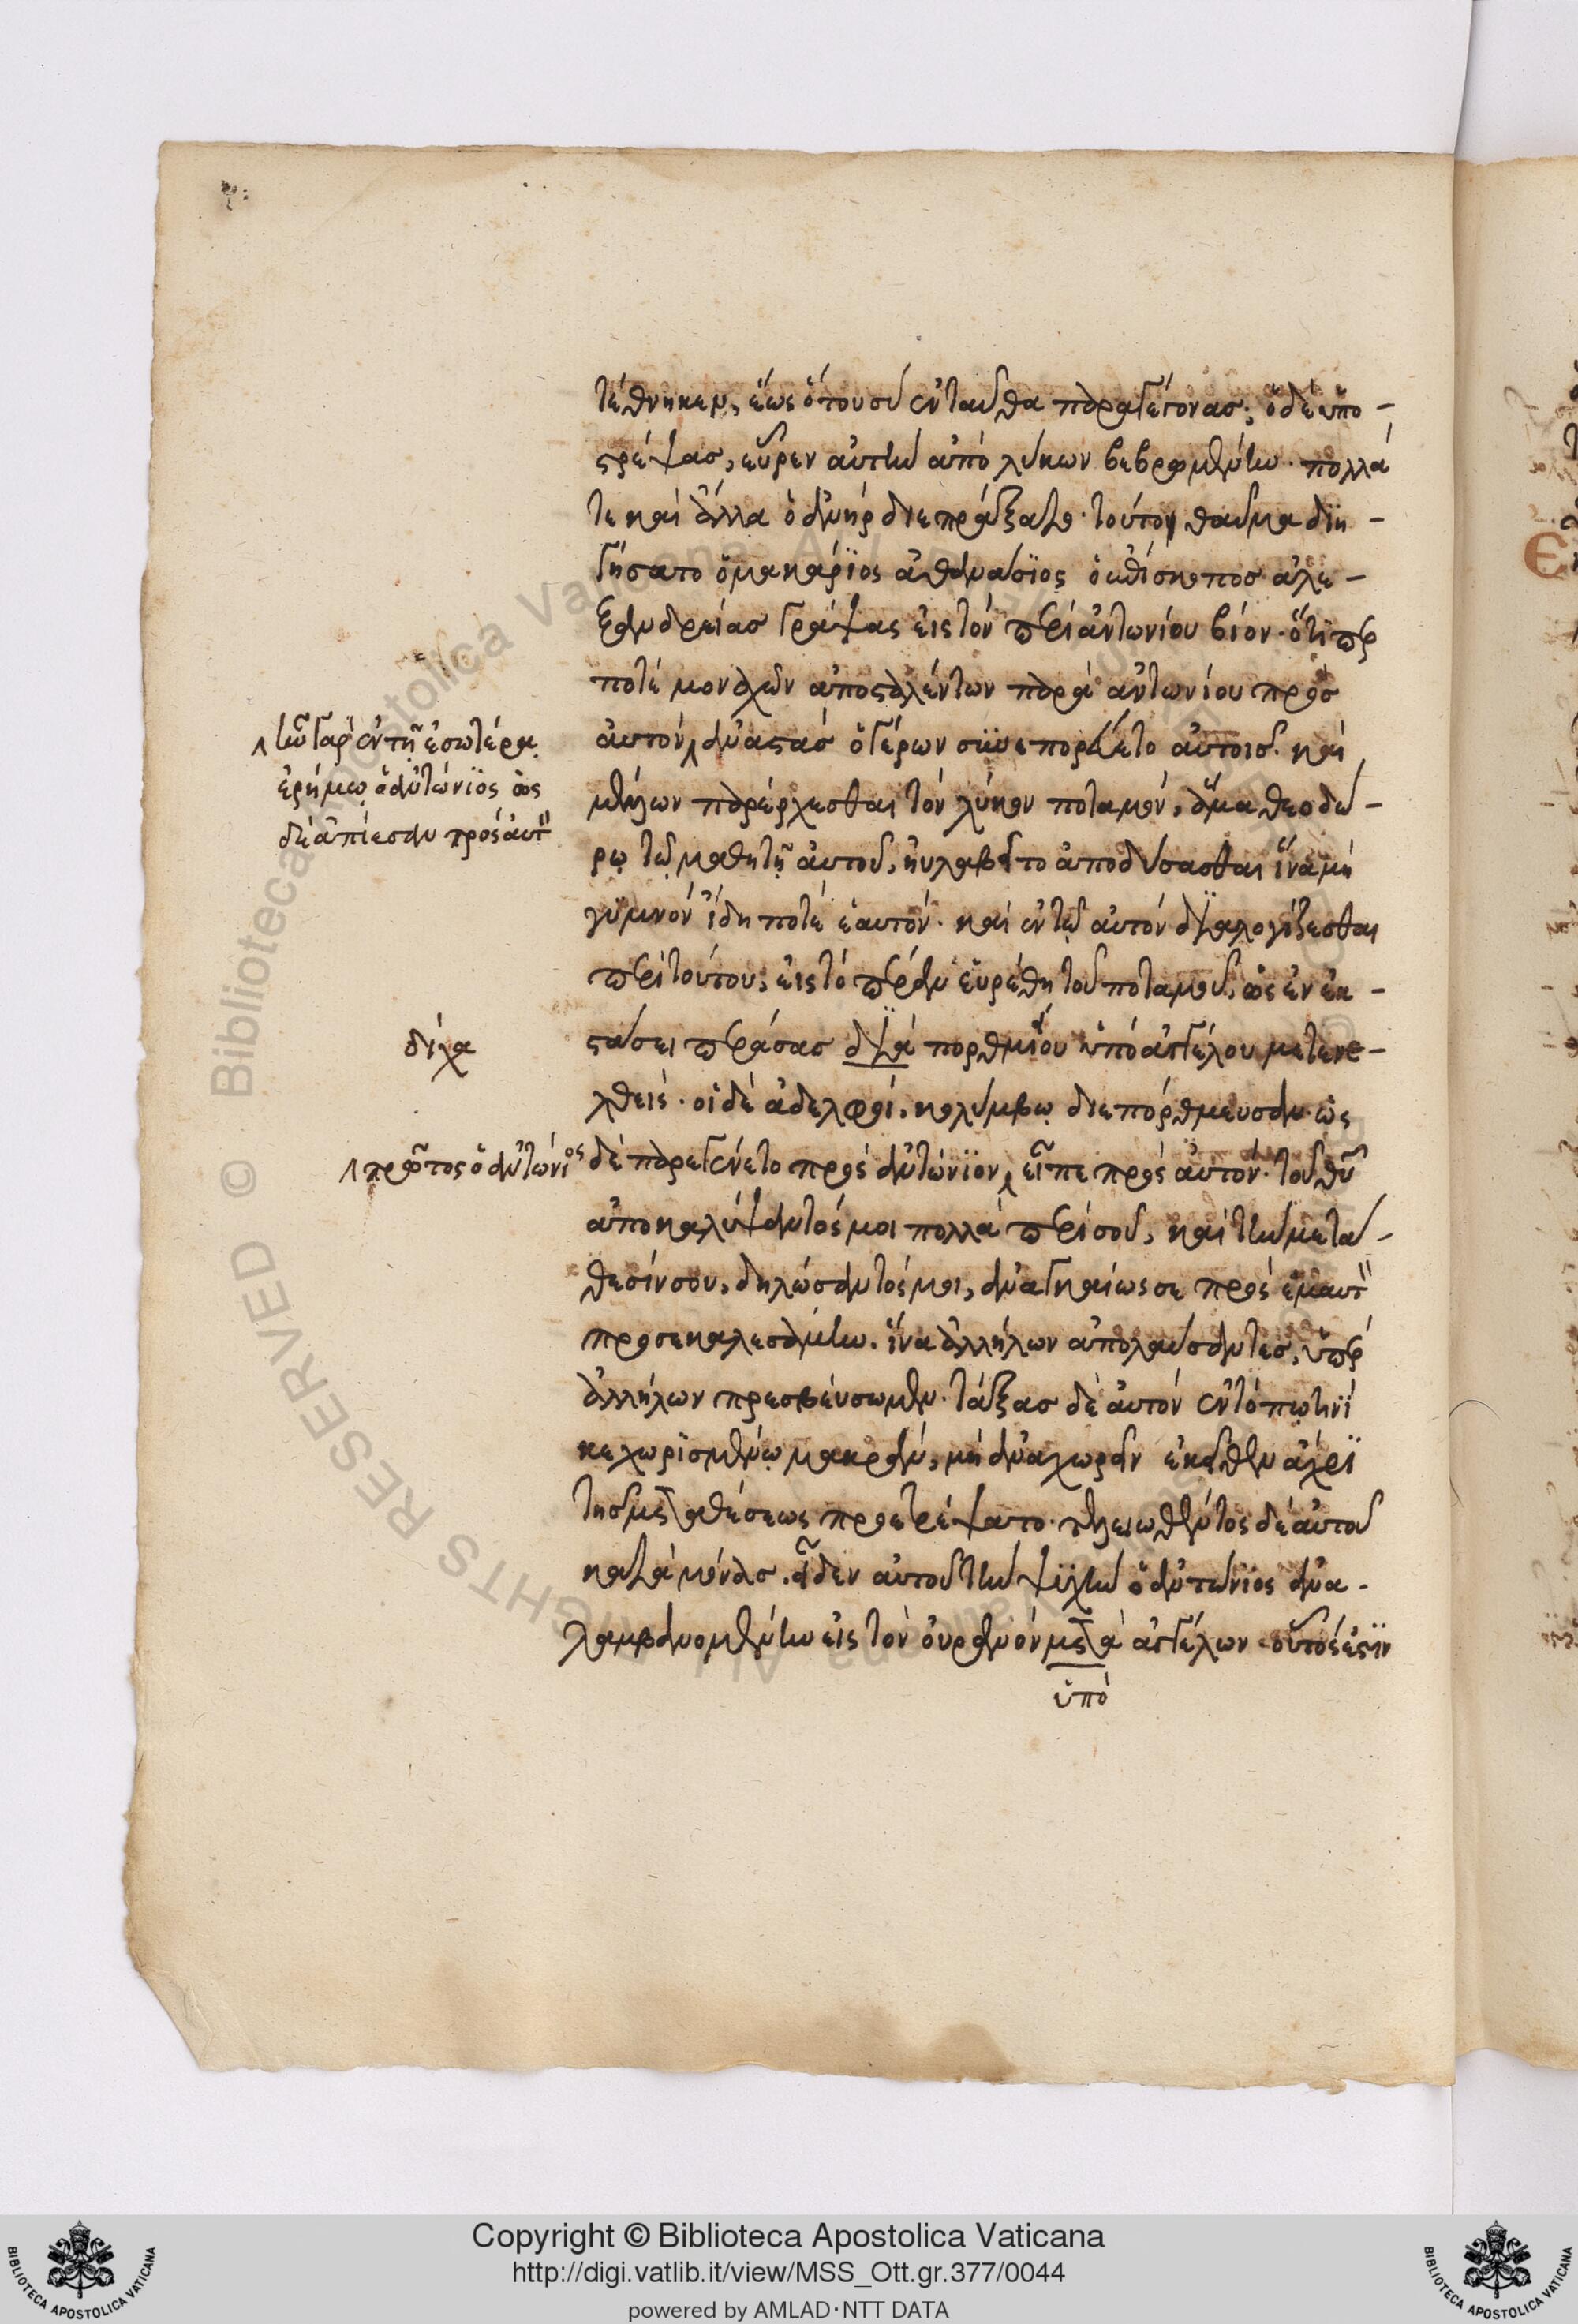 τέθνηκεν, ἕως ὅτου σὺ ἐνταῦθα παραγέγονας· ὁ δὲ ὑπο-
στρέψας, εὗρεν αὐτὴν ἀπὸ λύκων βεβρωμένην· πολλὰ
τε καὶ ἄλλα ὁ ἀνὴρ διεπράξατο· τούτου θαῦμα διη-
γήσατο ὁ μακάριος ἀθανάσιος ὁ ἐπίσκοπος ἀλε-
ξανδρείας γράψας εἰς τὸν περὶ ἀντωνίου βίον· ὅτιπερ
ποτὲ μοναχῶν ἀποσταλέντων παρὰ ἀντωνίου πρὸς
αὐτόν, ἀναστὰς ὁ γέρων συνεπορεύετο αὐτοῖς. καὶ
μέλλων παρέρχεσθαι τὸν λύκον ποταμόν, ἅμα θεοδώ-
ρῳ τῷ μαθητῇ αὐτοῦ, ηὐλαβεῖτο ἀποδύσασθαι ἵνα μὴ
γυμνὸν ἴδη ποτὲ ἑαυτόν· καὶ ἐν τῷ αὐτὸν διαλογίζεσθαι
περὶ τούτου, εἰς τὸ πέραν εὑρέθη τοῦ ποταμοῦ, ὡς ἐν ἐκ-
στάσει περάσας διὰ πορθμίου ὑπὸ ἀγγέλου μετενε-
χθείς· οἱ δὲ ἀδελφοὶ, κολύμβῳ διεπόρθμευσαν· ὡς
δὲ παρεγένετο πρὸς ἀντώνιον, εἶπε πρὸς αὐτόν· τοῦ θυ
ἀποκαλύψαντός μοι πολλὰ περὶ σοῦ, καὶ τὴν μετά-
θεσίν σου, δηλώσαντός μοι, ἀναγκαίως σε πρὸς ἐμαυτ
προσεκαλεσάμην. ἵνα ἀλλήλων ἀπολαύσαντες, ὑπὲρ
ἀλλήλων πρεσβεύσωμεν· τάξας δὲ αὐτὸν ἐν τόπῳ τινὶ
κεχωρισμένῳ μακράν, μὴ ἀναχωρεῖν ἐκεῖθεν ἄχρι
τῆς μεταθέσεως προετρέψατο· τελειωθέντος δὲ αὐτοῦ
καταμόνας. εἶδεν αὐτοῦ τὴν ψυχὴν ὁ ἀντώνιος ἀνα-
λαμβανομένην εἰς τὸν οὐρανὸν μετὰ ἀγγέλων· οὗτός ἐστιν
ὑπὸ
ἦν γὰρ ἐν τῇ ἐσωτέρᾳ
ἐρήμῳ ὁ ἀντώνιος ὡς
δὲ ἀπίεσαν πρὸς αὐτ
δίχα
πρῶτος ὁ ἀντώνιος
Copyright © Biblioteca Apostolica Vaticana
http://digi.vatlib.it/view/MSS_Ott.gr.377/0044
powered by AMLAD·NTT DATA
BIBLIOTECA APOSTOLICA VATICANA
BIBLIOTECA APOSTOLICA VATICANA